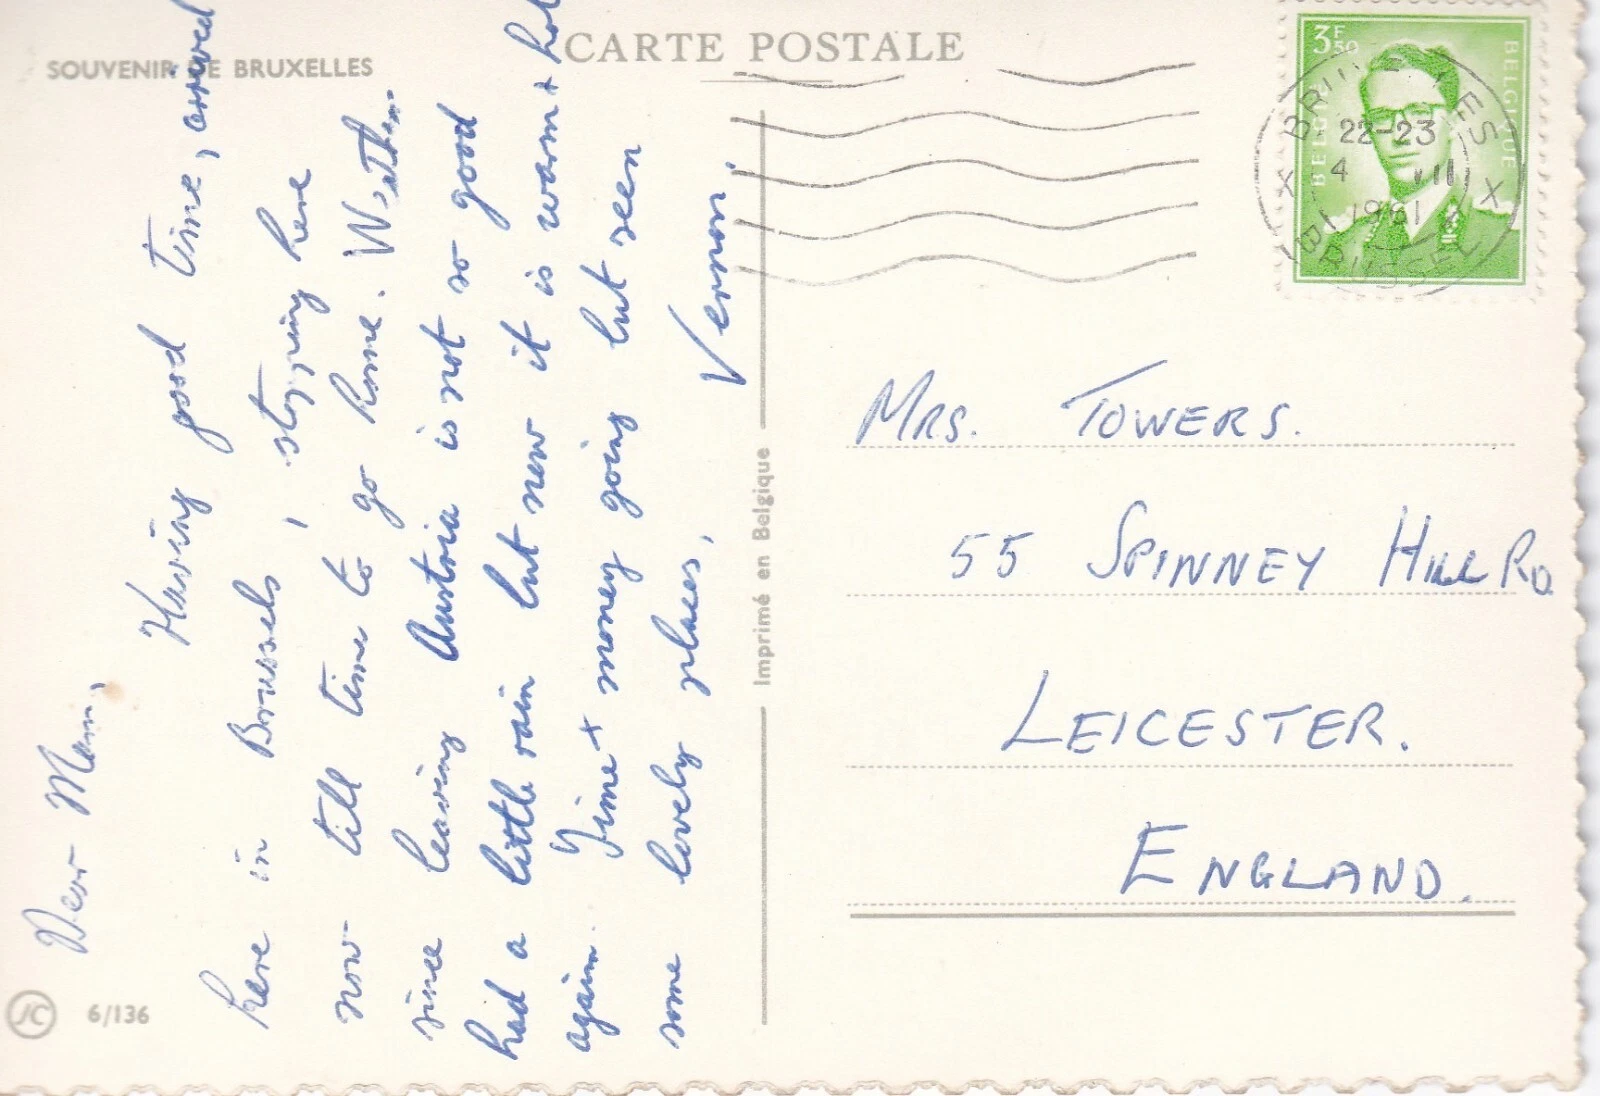 SOUVENIR DE BRUXELLES
CARTE POSTALE
Dear Mam,
Having good time, arrived
here in Brussels, stopping here
now till time to go home. Weather
since leaving Austria is not so good
had a little rain but now it is warm + hot
again. Time + money going but seen
some lovely places,
Vernon.
6/136
Imprimé en Belgique
3F50
BELGIE
BELGIQUE
BRUXELLES X
22-23
4
1961
BRUSSEL X
MRS. TOWERS.
55 SPINNEY HILL RD
LEICESTER.
ENGLAND.